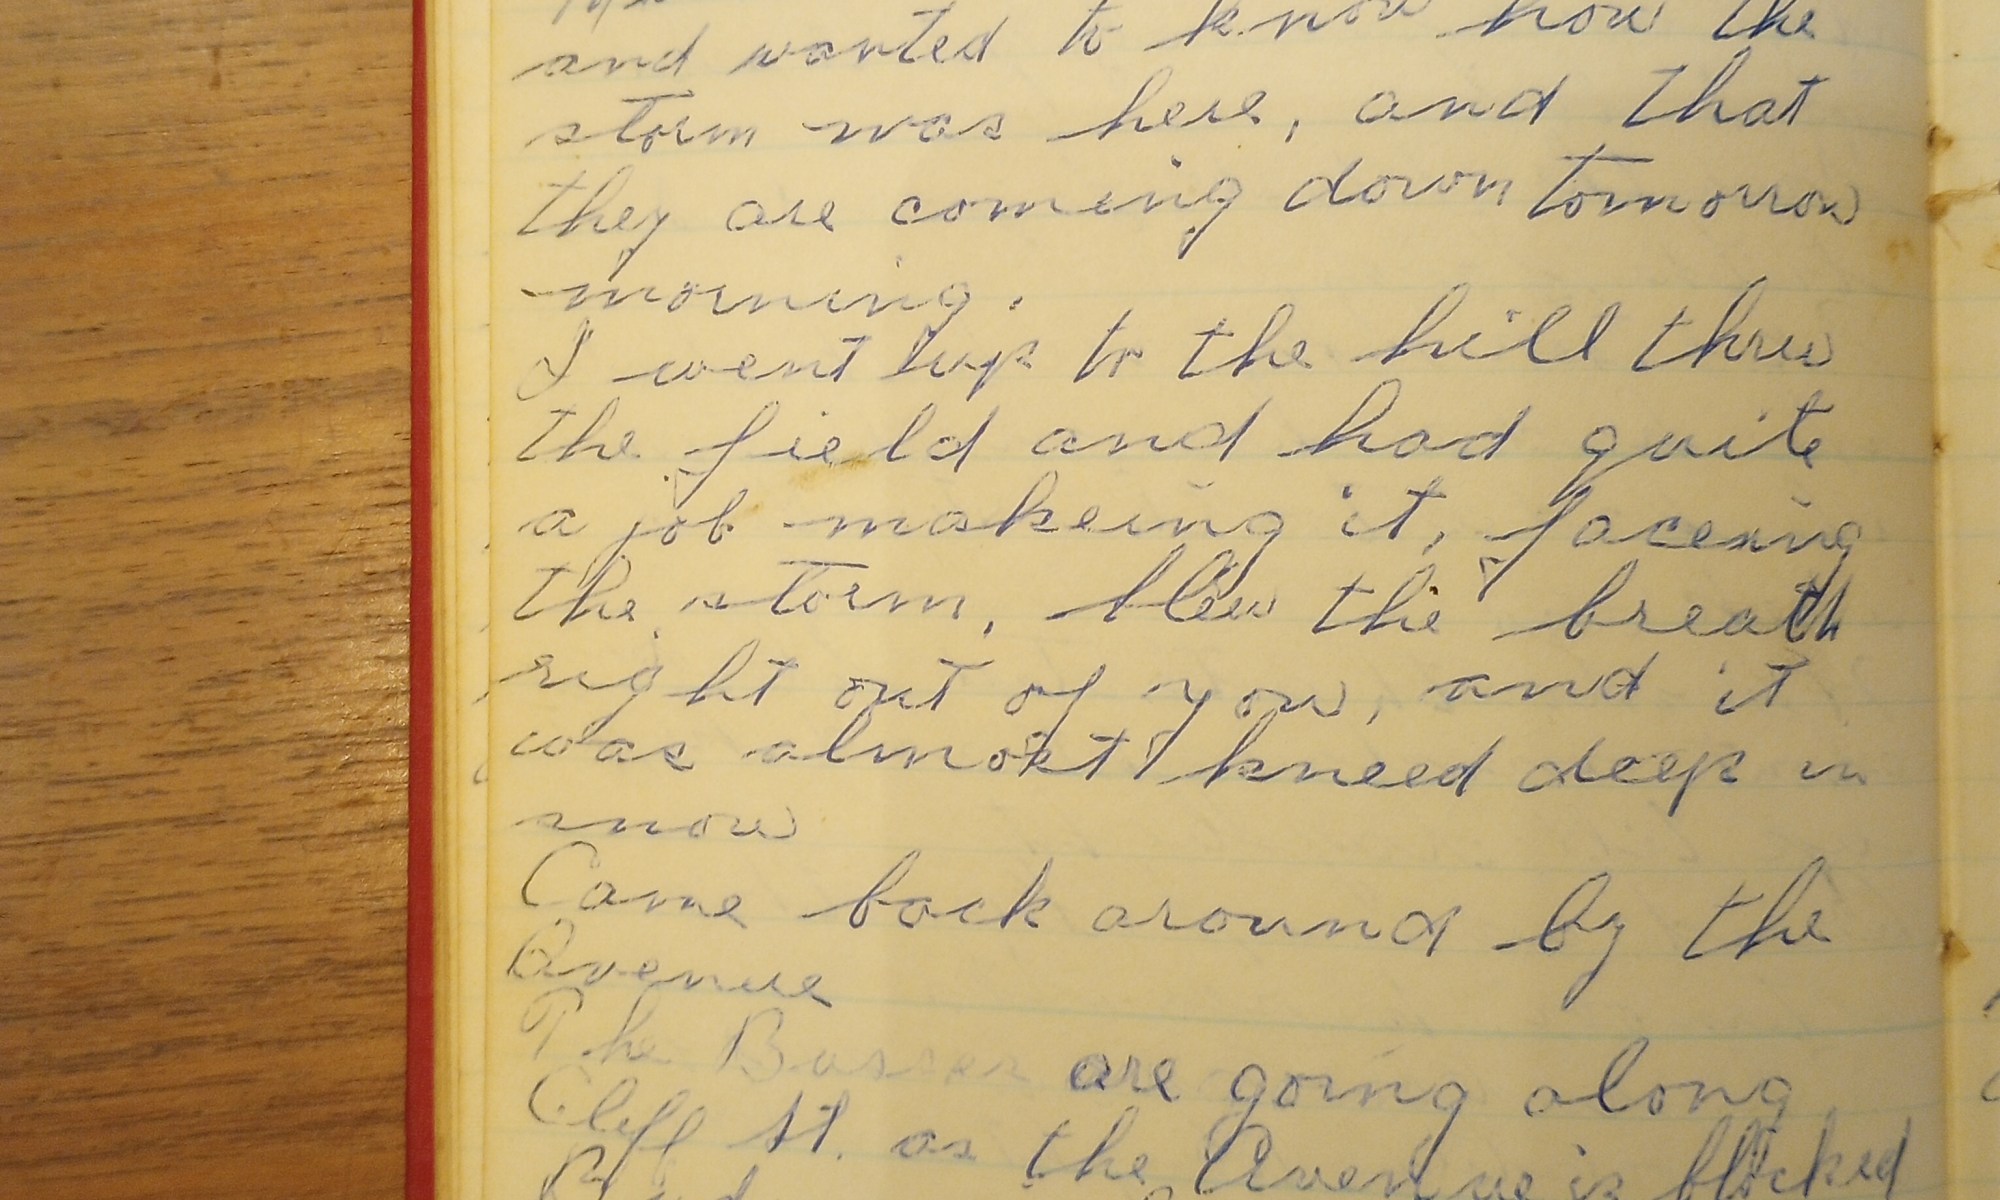 and wanted to know how the
storm was here, and that
they are coming down tomorrow
morning.
I went up to the hill thru
the field and had quite
a job makeing it, faceing
the storm, blew the breath
right out of you, and it
was almost kneed deep in
snow
Came back around by the
Avenue
The Busses are going along
Cliff St. as the Avenue is blocked